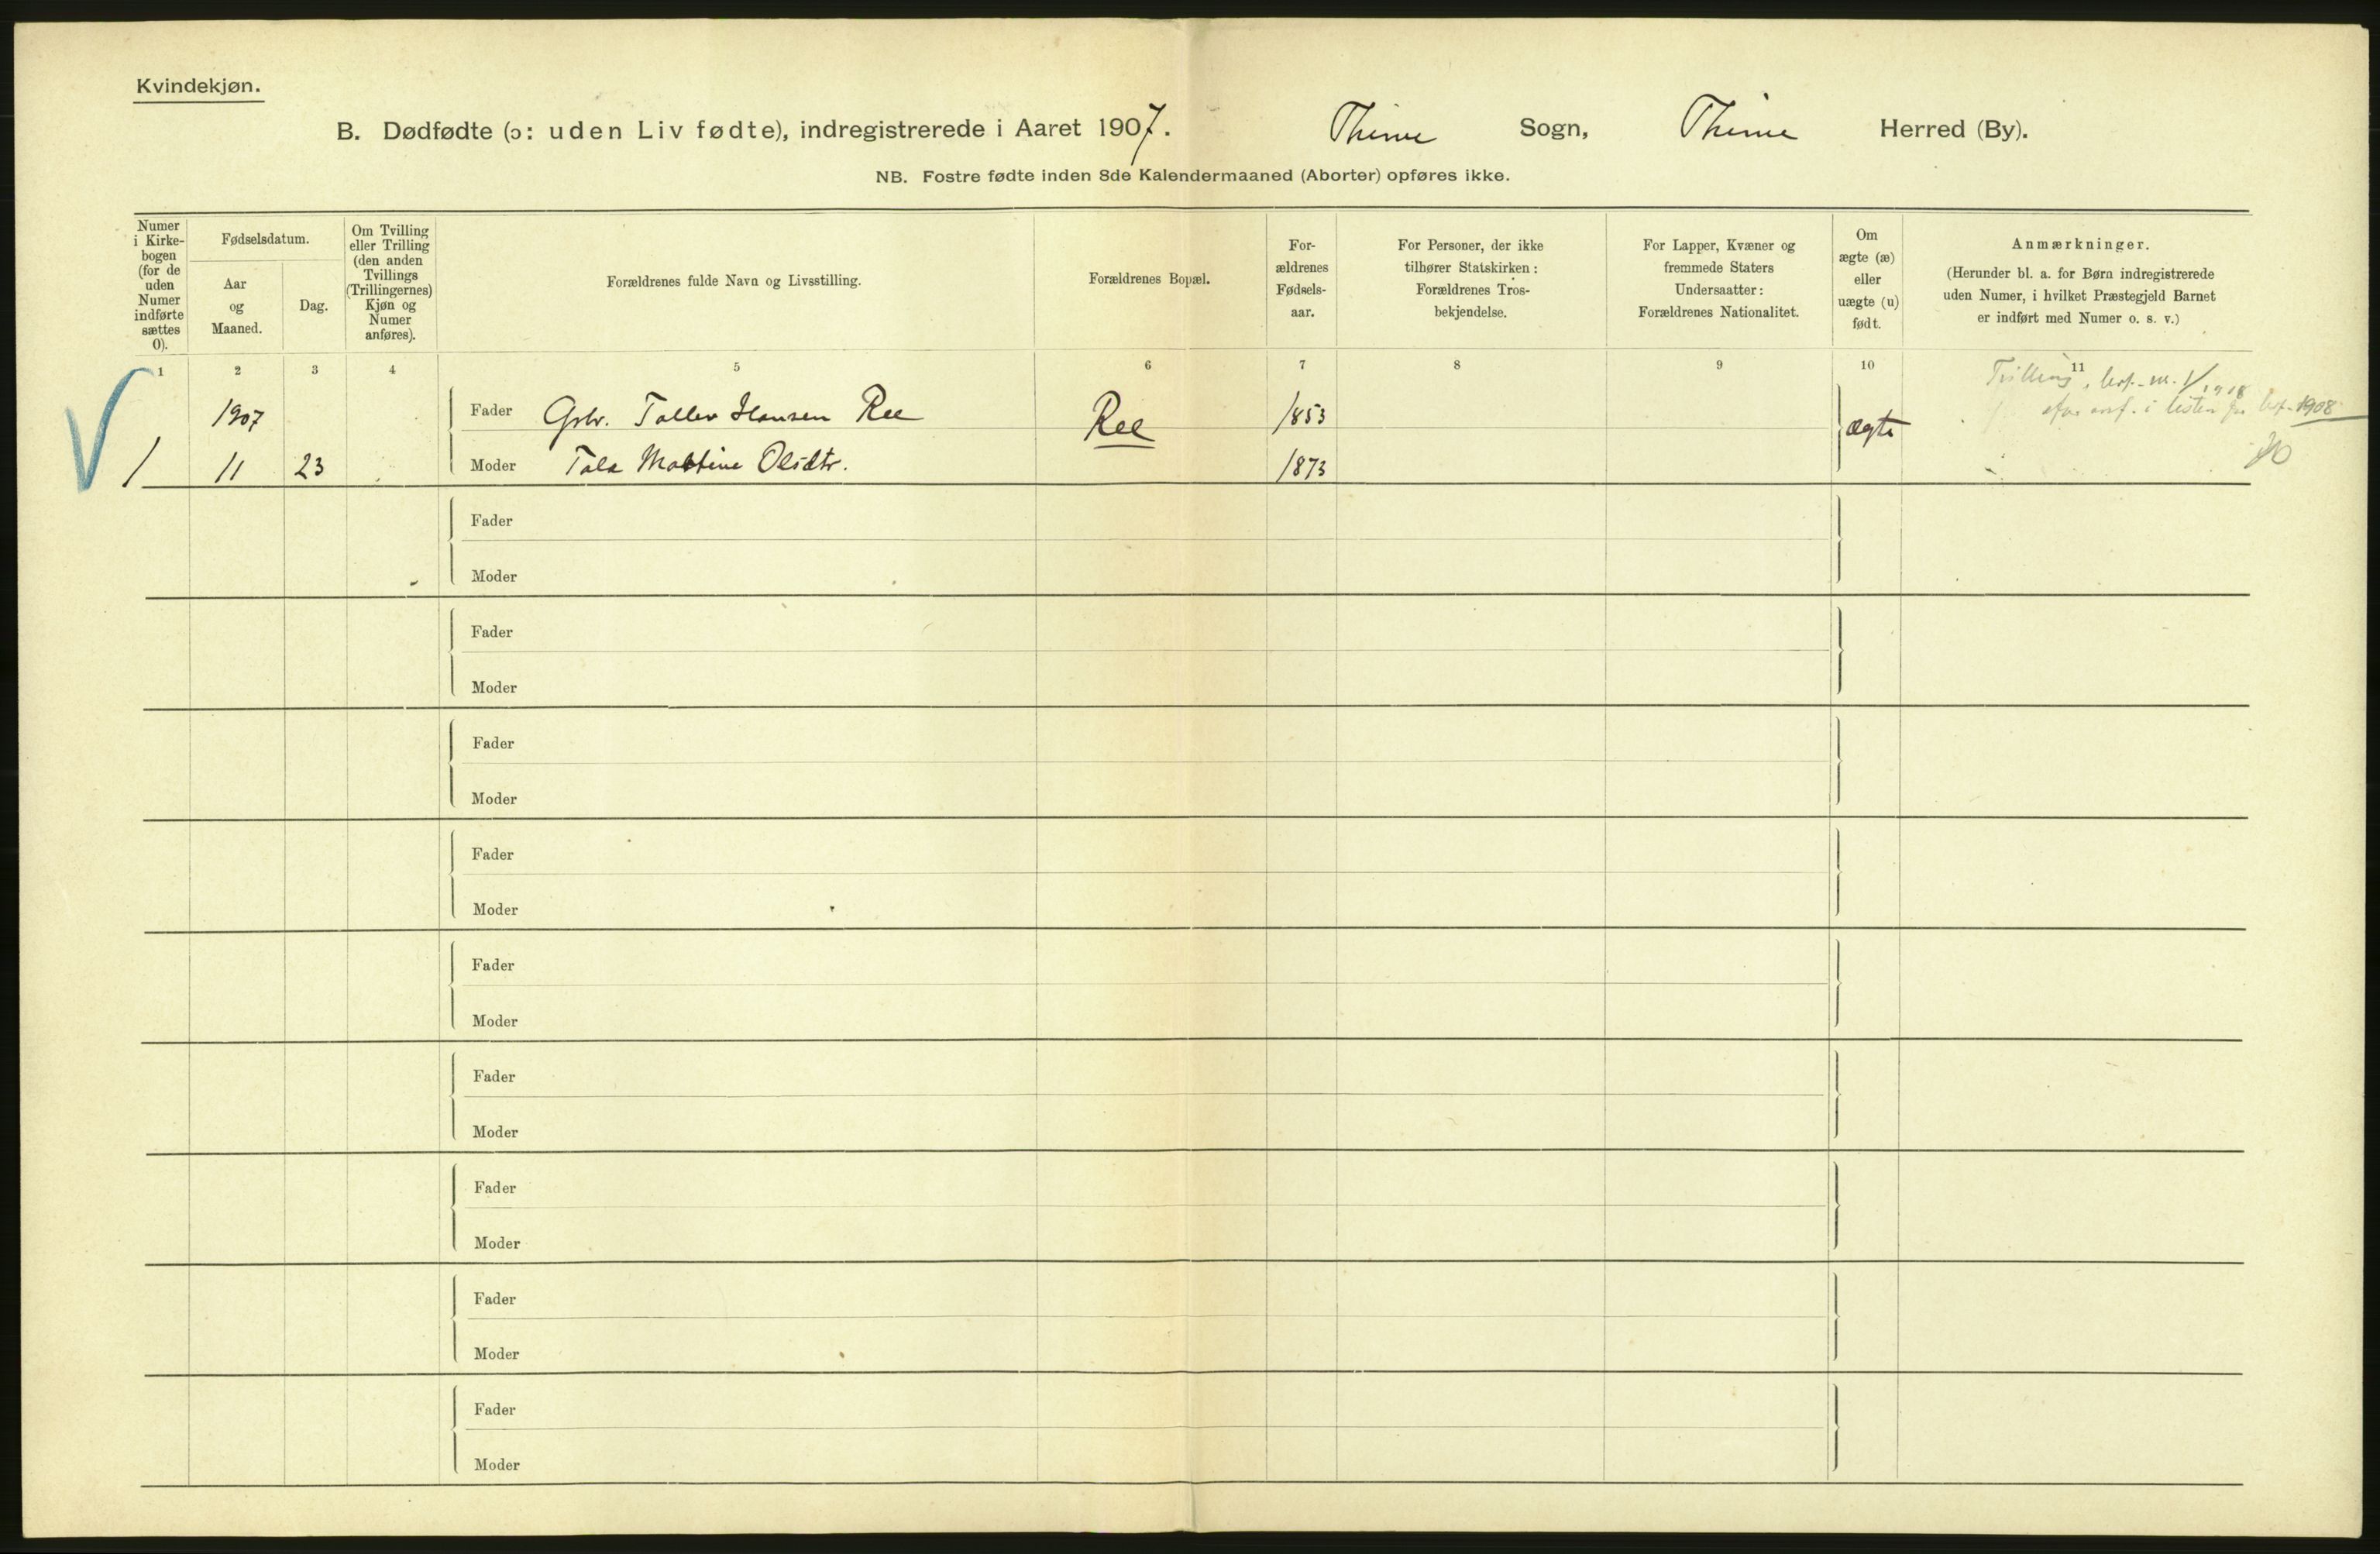 Kvindekjøn.
B. Dødfødte (ɔ: uden Liv fødte), indregistrerede i Aaret 1907. Thime Sogn, Thime Herred (By).
NB. Fostre fødte inden 8de Kalendermaaned (Aborter) opføres ikke.
Numer
i Kirke-
bogen
(for de
uden
Numer
indførte
sættes
0).
Fødselsdatum.
Aar
og
Maaned.
Dag.
Om Tvilling
eller Trilling
(den anden
Tvillings
(Trillingernes)
Kjøn og
Numer
anføres).
Forældrenes fulde Navn og Livsstilling.
Forældrenes Bopæl.
For-
ældrenes
Fødsels-
aar.
For Personer, der ikke
tilhører Statskirken:
Forældrenes Tros-
bekjendelse.
For Lapper, Kvæner og
fremmede Staters
Undersaatter:
Forældrenes Nationalitet.
Om
ægte (æ)
eller
uægte (u)
født.
Anmærkninger.
(Herunder bl. a. for Børn indregistrerede
uden Numer, i hvilket Præstegjeld Barnet
er indført med Numer o. s. v.)
1 2 3 4 5 6 7 8 9 10 11
1907 Fader Gbr. Tollev Hansen Ree Ree 1853 ægte
1 11 23 Moder Tala Martine Olsdtr. 1873
Trilling, 1908
i listen 1908
Fader
Moder
Fader
Moder
Fader
Moder
Fader
Moder
Fader
Moder
Fader
Moder
Fader
Moder
Fader
Moder
Fader
Moder